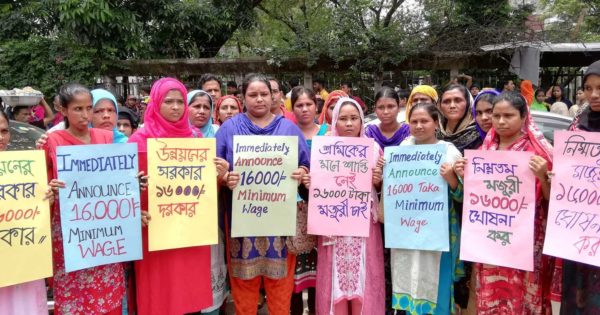 রকার
কার ॥
IMMEDIATELY
ANNOUNCE
16,000/-
MINIMUM
WAGE
উন্নয়নের
সরকার
১৬০০০/-
দরকার
Immediately
Announce
16000/-
Minimum
Wage
শ্রমিকের
মনে শান্তি
নেই
১৬০০০ টাকা
মজুরী চাই
Immediately
Announce
16000 Taka
Minimum
Wage
নিম্নতম
মজুরী
১৬০০০/-
ঘোষনা
কর
ঘোষনা
কর